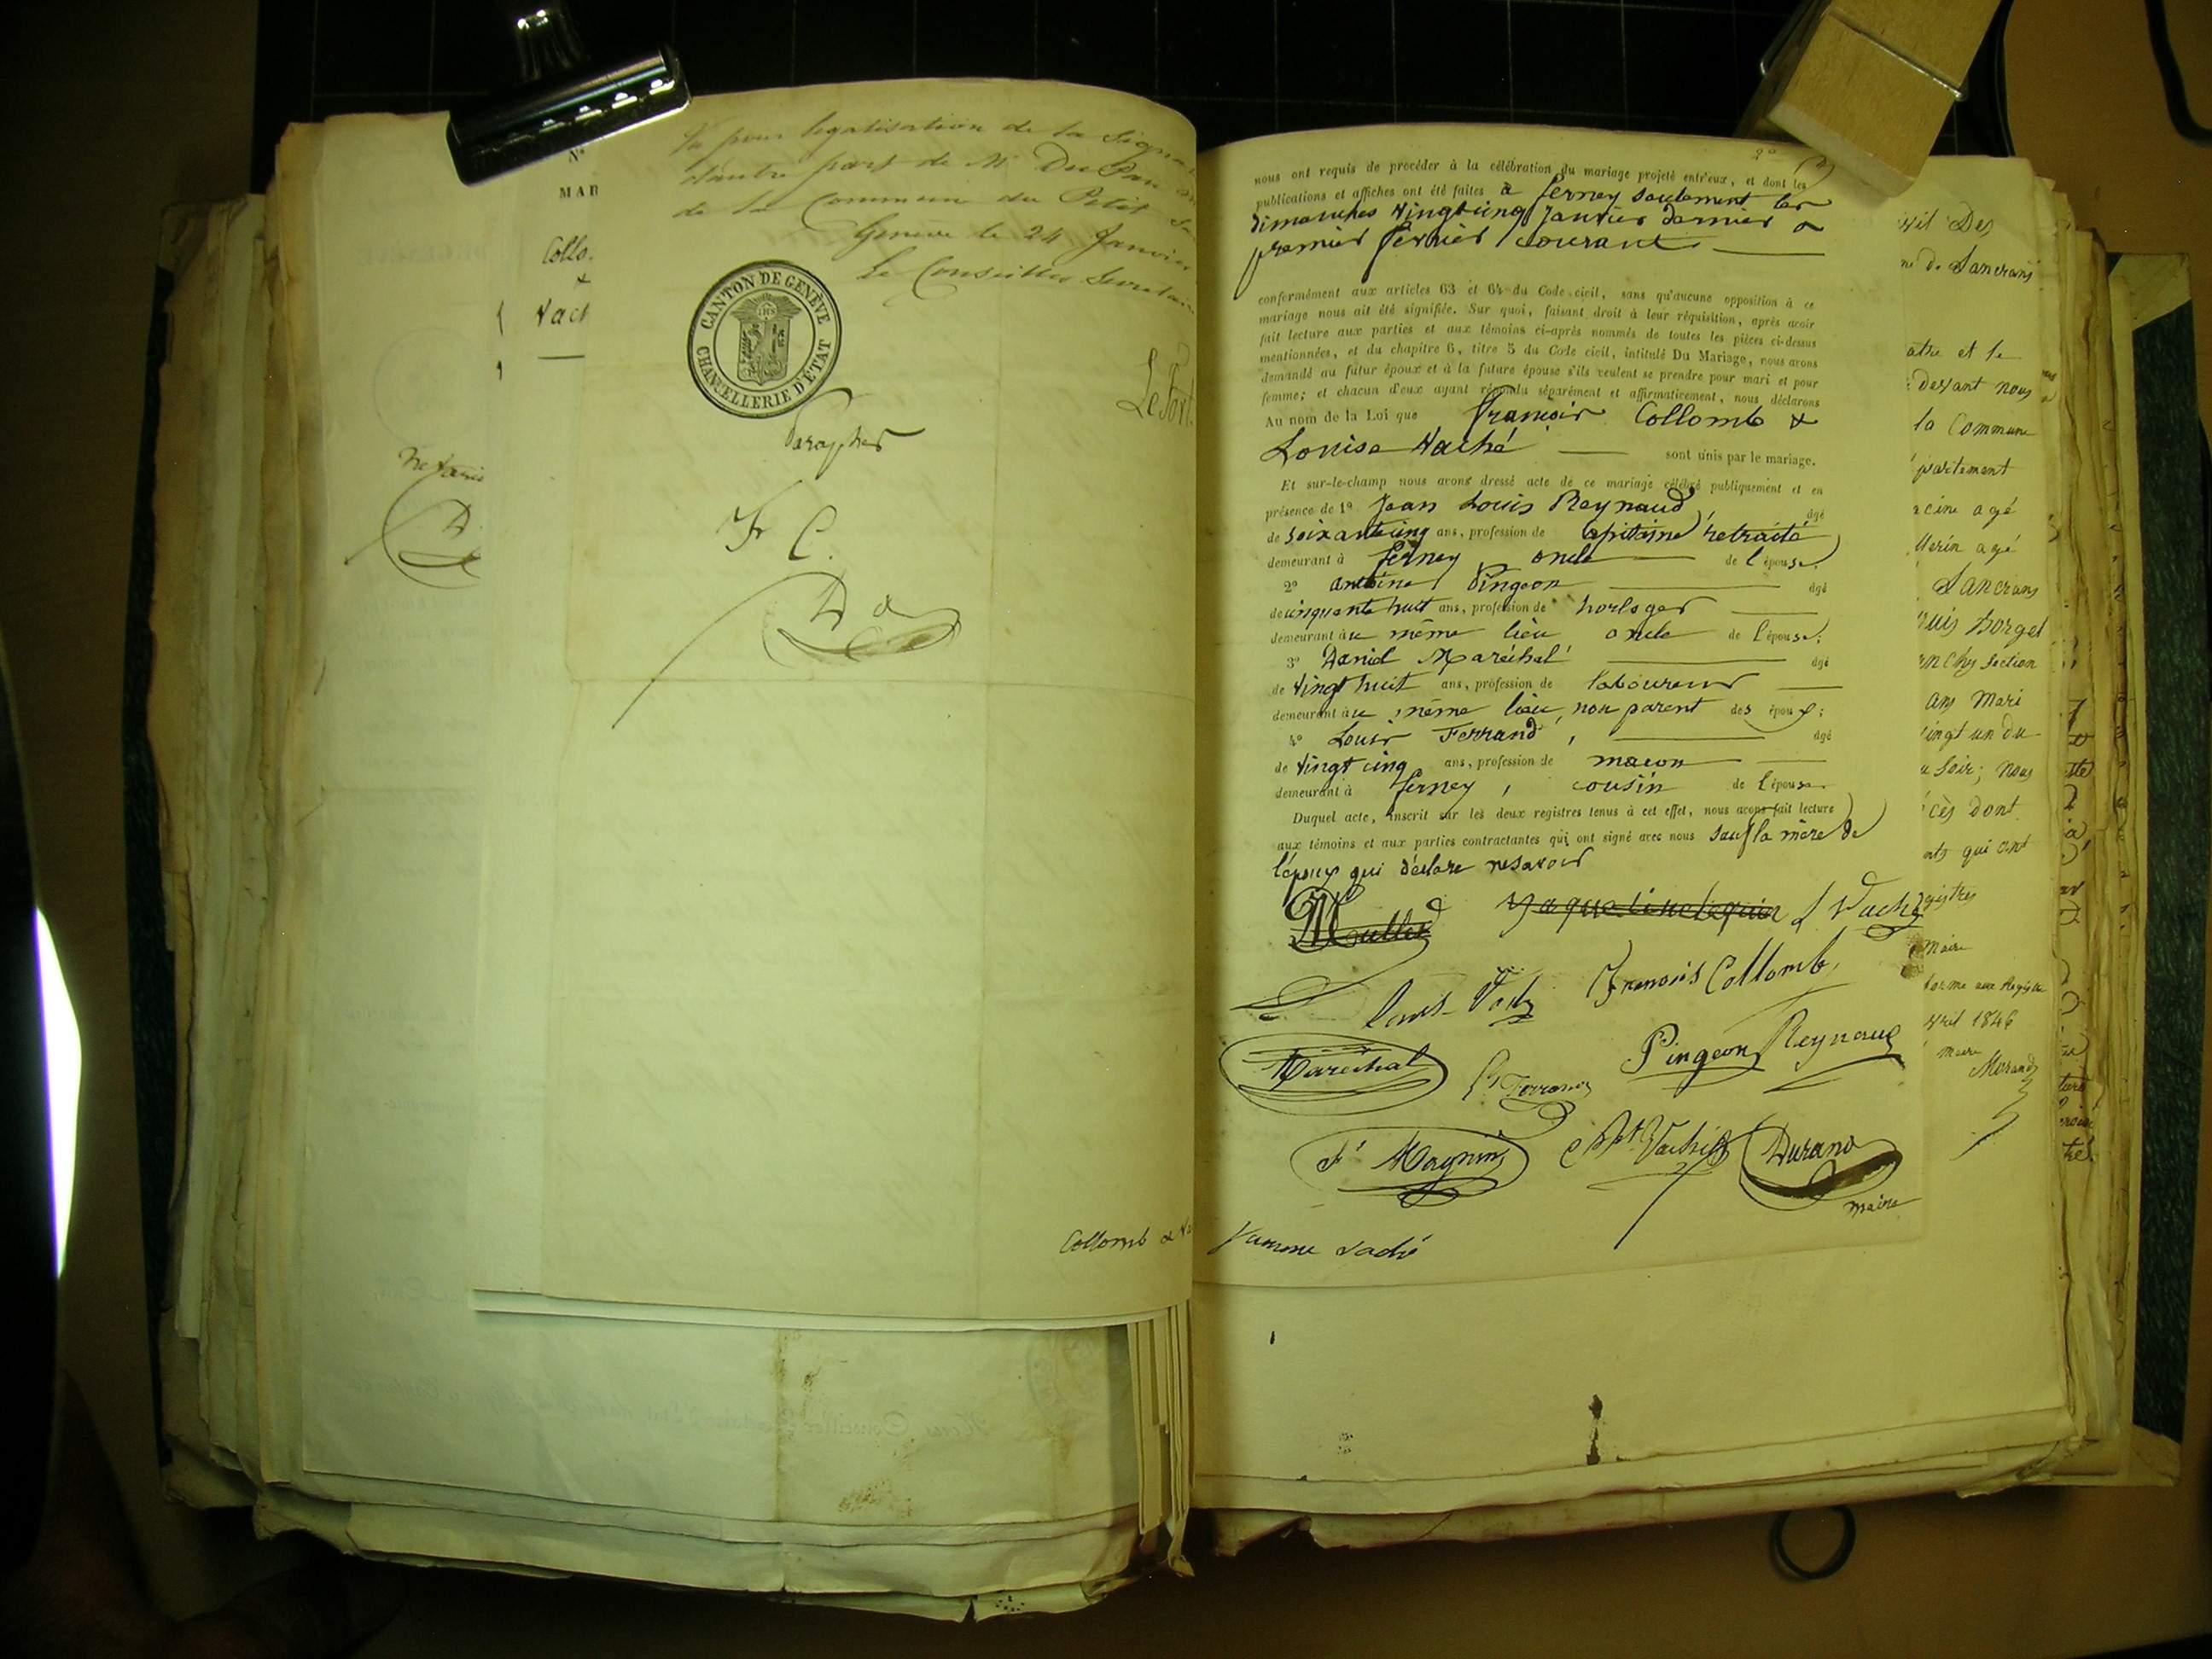 N°
MAR
Collo.
&
Vach
Vu pour legalisation de la Signa
d'autre part de Mr DuPan
de la Commune du Petit Sa
Genève le 24 Janvier
Le Conseiller Secretaire
CANTON DE GENÈVE
CHANCELLERIE D'ÉTAT
LeFort
Parapher
F C.
D a
D
Collomb & Va
2°
nous ont requis de procéder à la célébration du mariage projeté entr'eux, et dont les
publications et affiches ont été faites à ferney seulement les
dimanches vingtcinq Janvier dernier &
premier fevrier courant
conformément aux articles 63 et 64 du Code civil, sans qu'aucune opposition à ce
mariage nous ait été signifiée. Sur quoi, faisant droit à leur réquisition, après avoir
fait lecture aux parties et aux témoins ci-après nommés de toutes les pièces ci-dessus
mentionnées, et du chapitre 6, titre 5 du Code civil, intitulé Du Mariage, nous avons
demandé au futur époux et à la future épouse s'ils veulent se prendre pour mari et pour
femme; et chacun d'eux ayant répondu séparément et affirmativement, nous déclarons
Au nom de la Loi que françois Collomb &
Louise Vaché sont unis par le mariage.
Et sur-le-champ nous avons dressé acte de ce mariage célébré publiquement et en
présence de 1° Jean Louis Reynaud âgé
de soixantecinq ans, profession de Capitaine retraité
demeurant à ferney oncle de l'épouse;
2° antoine Pingeon âgé
de cinquante huit ans, profession de horloger
demeurant au même lieu oncle de l'épouse;
3° Daniel Maréchal âgé
de vingt huit ans, profession de laboureur
demeurant au même lieu, non parent des époux;
4° Louis Ferrand, âgé
de vingt cinq ans, profession de macon
demeurant à ferney, cousin de l'épouse.
Duquel acte, inscrit sur les deux registres tenus à cet effet, nous avons fait lecture
aux témoins et aux parties contractantes qui ont signé avec nous sauf la mère de
l'époux qui déclare ne savoir
Muller L Vaché
François Collomb
Maréchal Ls Ferrand Pingeon Reynaud
Fs Magnin Vaché Durand
maire
Vaché
ivil Des
ne de Lancrans
atre et le
devant nous
la Commune
partement
acine agé
llerin agé
Lancrans
ouis horgel
anchy section
ans Mari
vingt un du
u soir; nous
cès dont
nts qui ont
gistres
Maire
forme aux Registre
vril 1846
maire
Morand